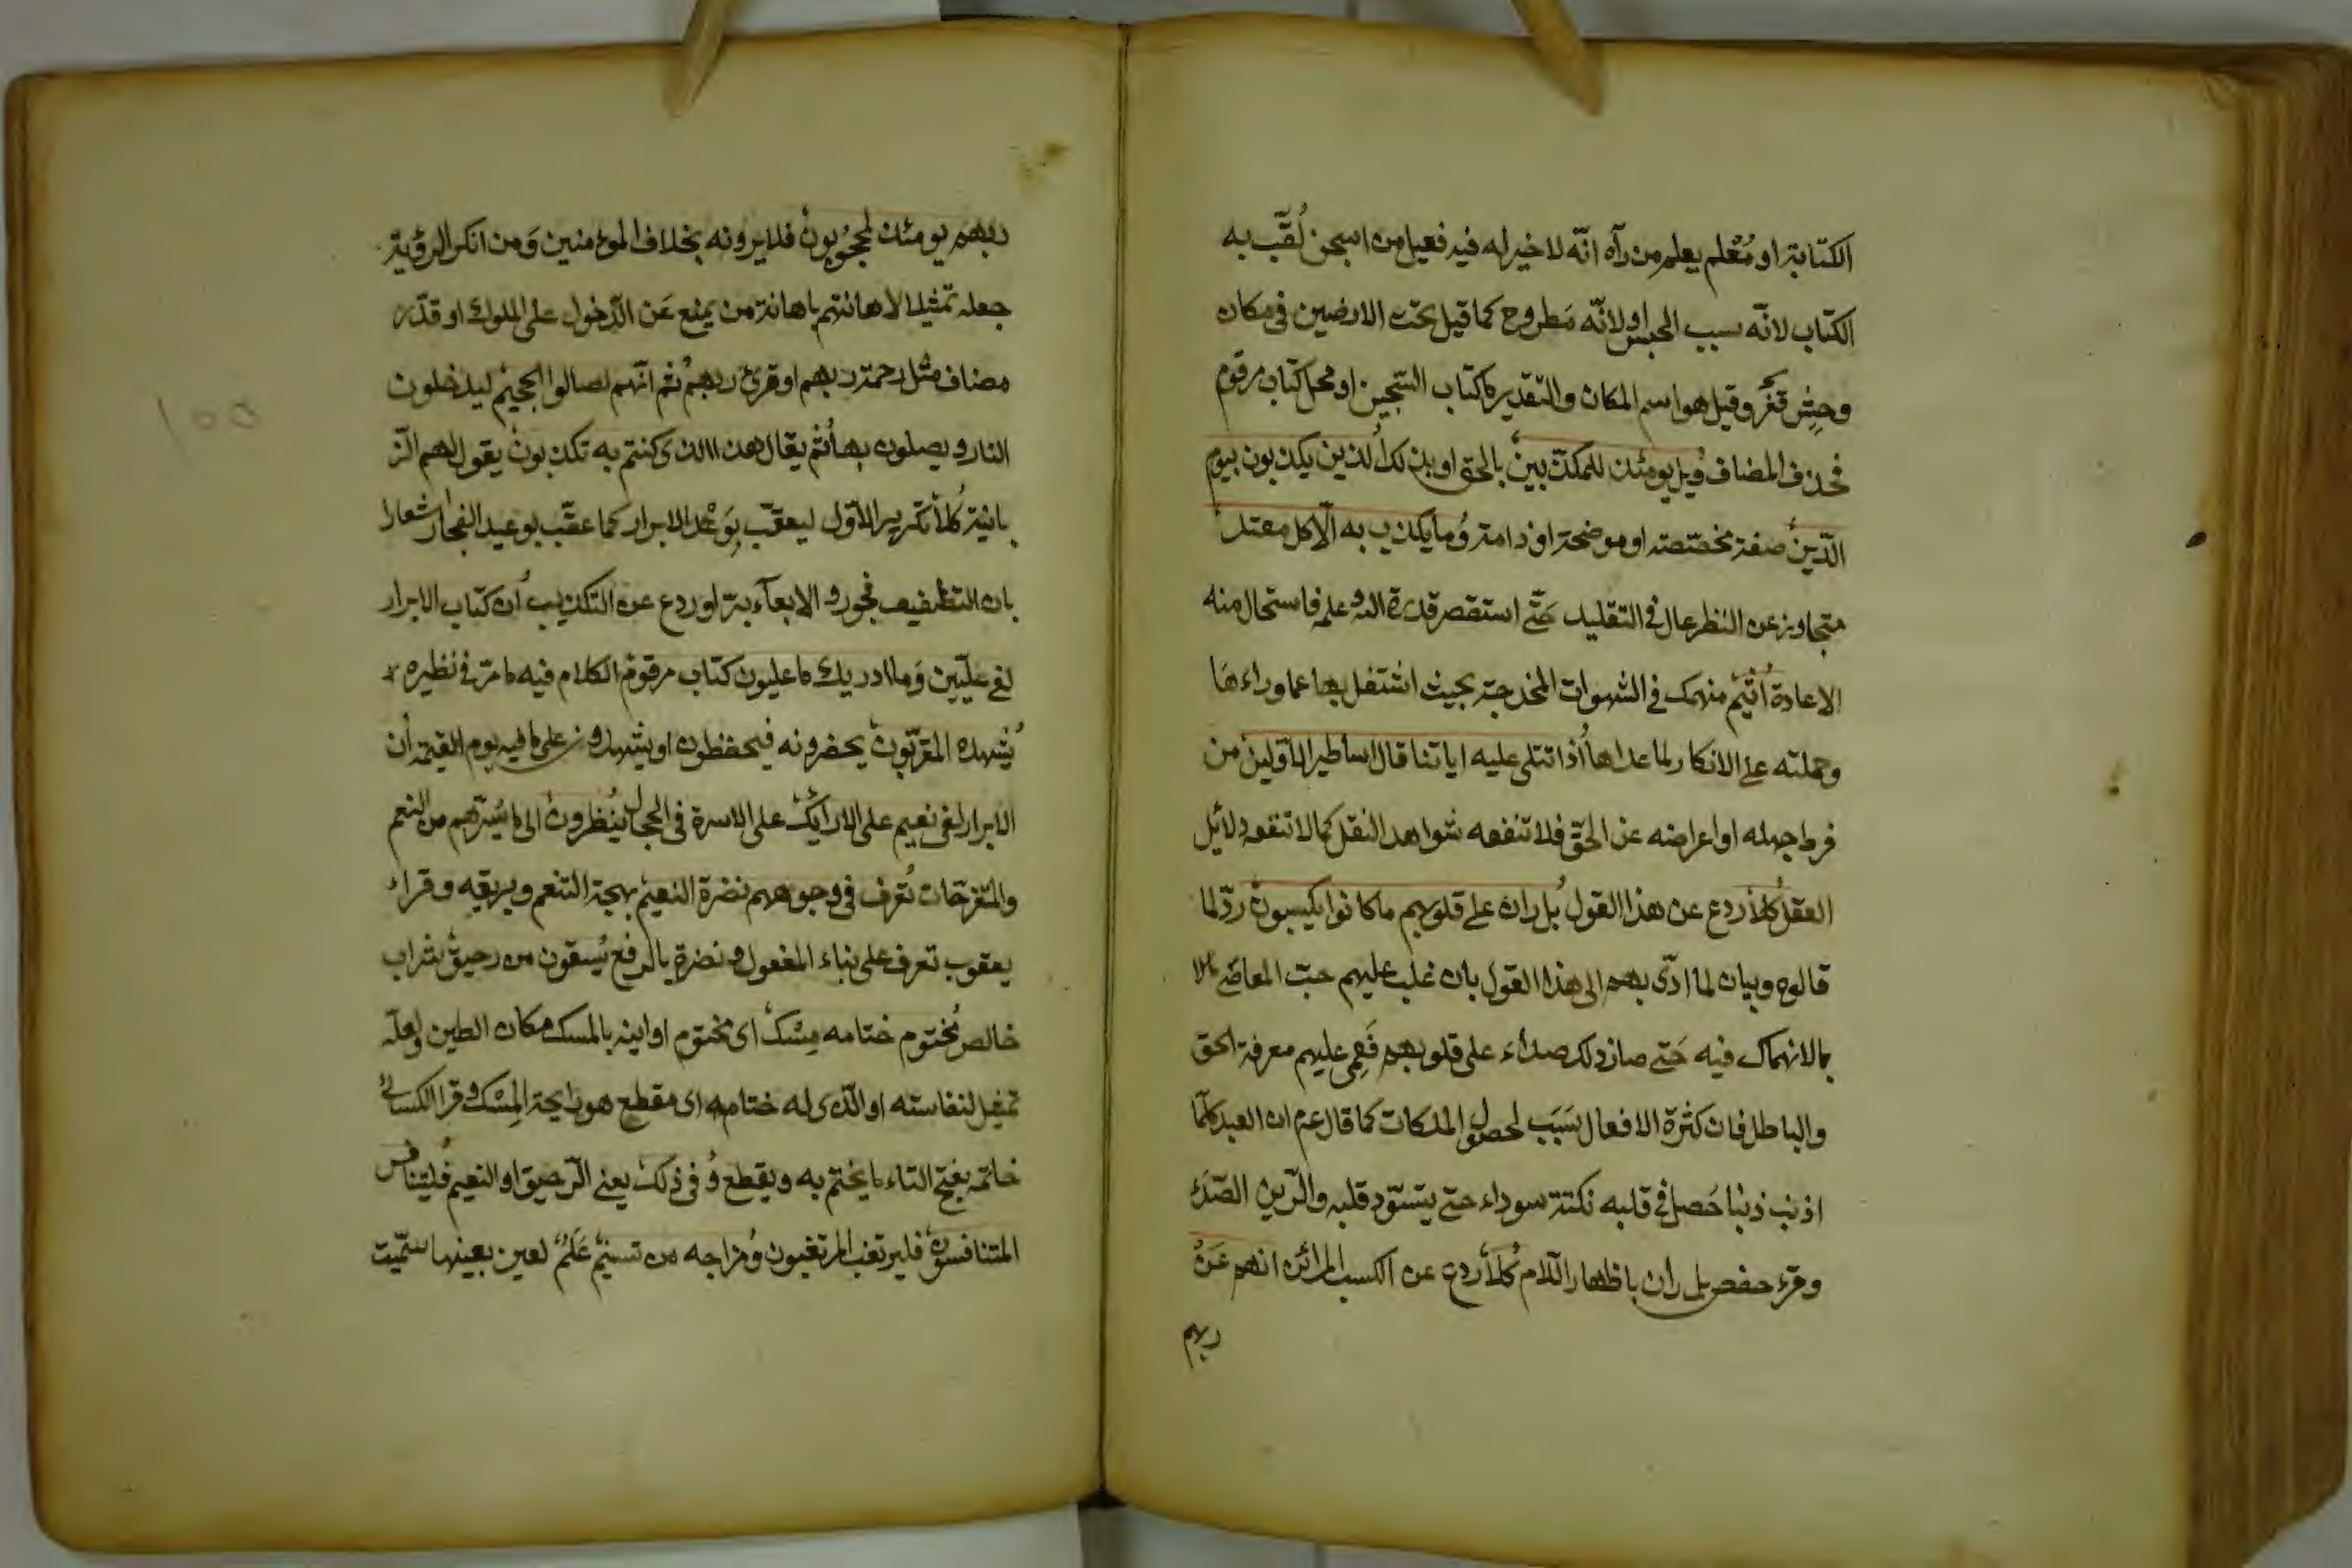 الكتابة او مُعْلم يعلم من رآه انّه لا خير له فيه فعيل من السجن لُقّب به
الكتاب لانّه سبب الحبس او لانّه مَطروح كما قيل تحت الارضين فى مكان
وحِش قفر وقيل هو اسم المكان والتقدير ما كتاب السّجين او محل كتاب مرقوم
فحذف المضاف وُيل يومئذ للمكذّبين بالحق او بذلك الذين يكذبون بيوم
الدّين صفة مخصّصة او موضحة او ذامة وُما يكذب به الّا كل معتد
متجاوز عن النظر عال فى التقليد حَتّى استقصر قدرة الله وعلمه فاستحال منه
الاعادة اُثيم منهمك فى الشهوات المخدجة بحيث اشتغل بها عما وراءها
وحملته على الانكار لما عداها اُذا تتلى عليه اياتنا قال اساطير الاوّلين من
فرط جهله او اعراضه عن الحقّ فلا تنفعه شواهد النقل كما لا تنفعه دلائل
العقل كُلّا ردع عن هذا القول بُل ران على قلوبهم ما كانوا يكسبون ردّ لما
قالوه وبيان لما ادّى بهم الى هذا القول بان غلب عليهم حبّ المعاصى
بالانهماك فيه حَتى صار ذلك صداء على قلوبهم فَعمِى عليهم معرفة الحق
والباطل فان كثرة الافعال سَبَب لحصول الملكات كما قال عم ان العبد كلّما
اذنب ذنبا حَصل فى قلبه نكتة سوداء حتى يتسوّد قلبه والرّين الصّدَء
وقرء حفص بل ران باظهار اللام كُلّا ردع عن الكسب الرائن انهم عَنْ
ربهم
ربهم يومئذ لمحجُوبون فلا يرونه بخلاف المؤمنين وَمن انكر الرؤية
جعله تمثيلا لاهانتهم باهانة من يمنع عَن الدّخول على الملوك او قدّر
مضاف مثل رحمة ربهم او قرئ ربهم ثُم انّهم لصالوا الجحيم ليدخلون
النار ويصلون بها ثُم يقال هذا الذى كنتم به تكذبون يقول لهم الزّ
بانية كُلّا تكرير الاوّل ليعقّب بِوَعْد الابرار كما عقّب بوعيد الفجار اشعارا
بان التطفيف فجور والايفاء برّ او ردع عن التكذيب اُن كتاب الابرار
لفى علّيّين وَما ادريك ما عليون كتاب مرقوم الكلام فيه ما مرّ فى نظيره
يُشهده المقرّبون يحضرونه فيحفظون او يشهدون على ما فيه يوم القيمة اُن
الابرار لفى نعيم على الارائك على الاسرة فى الحجال يُنظرون الى ما يُسرّهم من النعم
والمتفرّجات تُعرف فى وجوههم نضرة النعيم بهجة التنعم وبريقه وقراء
يعقوب تعرف على بناء المفعول ونضرة بالرفع يُسقون من رحيق شراب
خالص مُختوم ختامه مِسْك اى مختوم اوانيه بالمسك مكان الطين ولعلّه
تمثيل لنفاسته او الّذى له ختامه اى مقطع هو رايحة المِسْك وقرا الكسائى
خاتَمه بفتح التاء ما يختم به ويقطع وُفى ذلك يعنى الرّحيق او النعيم فُليتنافس
المتنافسون فليرتغب المرتغبون وُمزاجه من تسنيم عَلَم لعين بعينها سمّيت
١٥٥